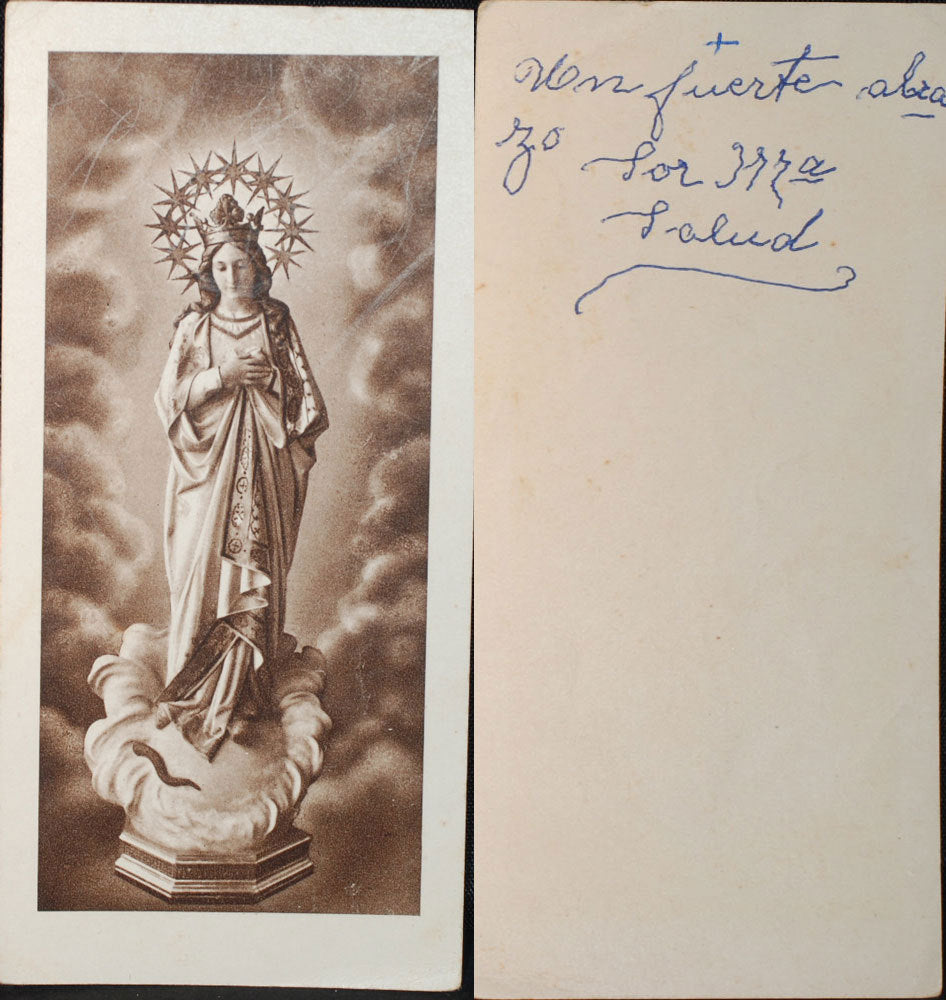 +
Un fuerte abra
zo Sor Mª
Salud